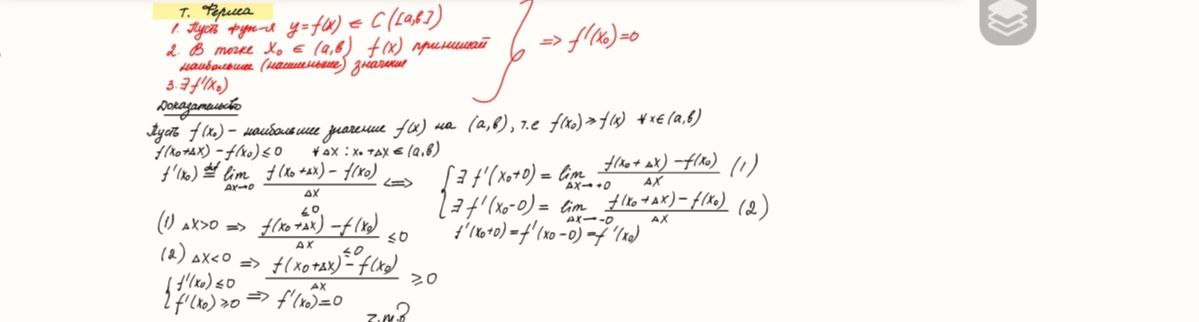 т. Ферма
1. Пусть фун-я y=f(x) ∈ C([a,b])
2. В точке x₀ ∈ (a,b) f(x) принимает
наибольшее (наименьшее) значение
3. ∃ f'(x₀)
=> f'(x₀)=0
Доказательство
Пусть f(x₀) – наибольшее значение f(x) на (a,b), т.е f(x₀)⩾f(x) ∀x∈(a,b)
f(x₀+Δx) – f(x₀) ≤ 0 ∀Δx : x₀+Δx ∈ (a,b)
f'(x₀) ≝ lim_{Δx→0} (f(x₀+Δx) – f(x₀))/Δx <=> { ∃ f'(x₀+0) = lim_{Δx→+0} (f(x₀+Δx) – f(x₀))/Δx (1)
∃ f'(x₀-0) = lim_{Δx→-0} (f(x₀+Δx) – f(x₀))/Δx (2)
f'(x₀+0) = f'(x₀-0) = f'(x₀)
≤0
(1) Δx>0 => (f(x₀+Δx) – f(x₀))/Δx ≤ 0
≤0
(2) Δx<0 => (f(x₀+Δx) – f(x₀))/Δx ⩾ 0
{ f'(x₀) ≤ 0
f'(x₀) ⩾ 0 => f'(x₀)=0
ч.т.д